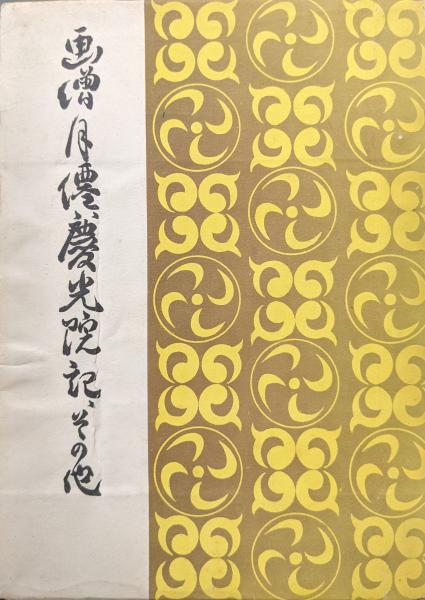 画僧月僊、慶光院記、その他